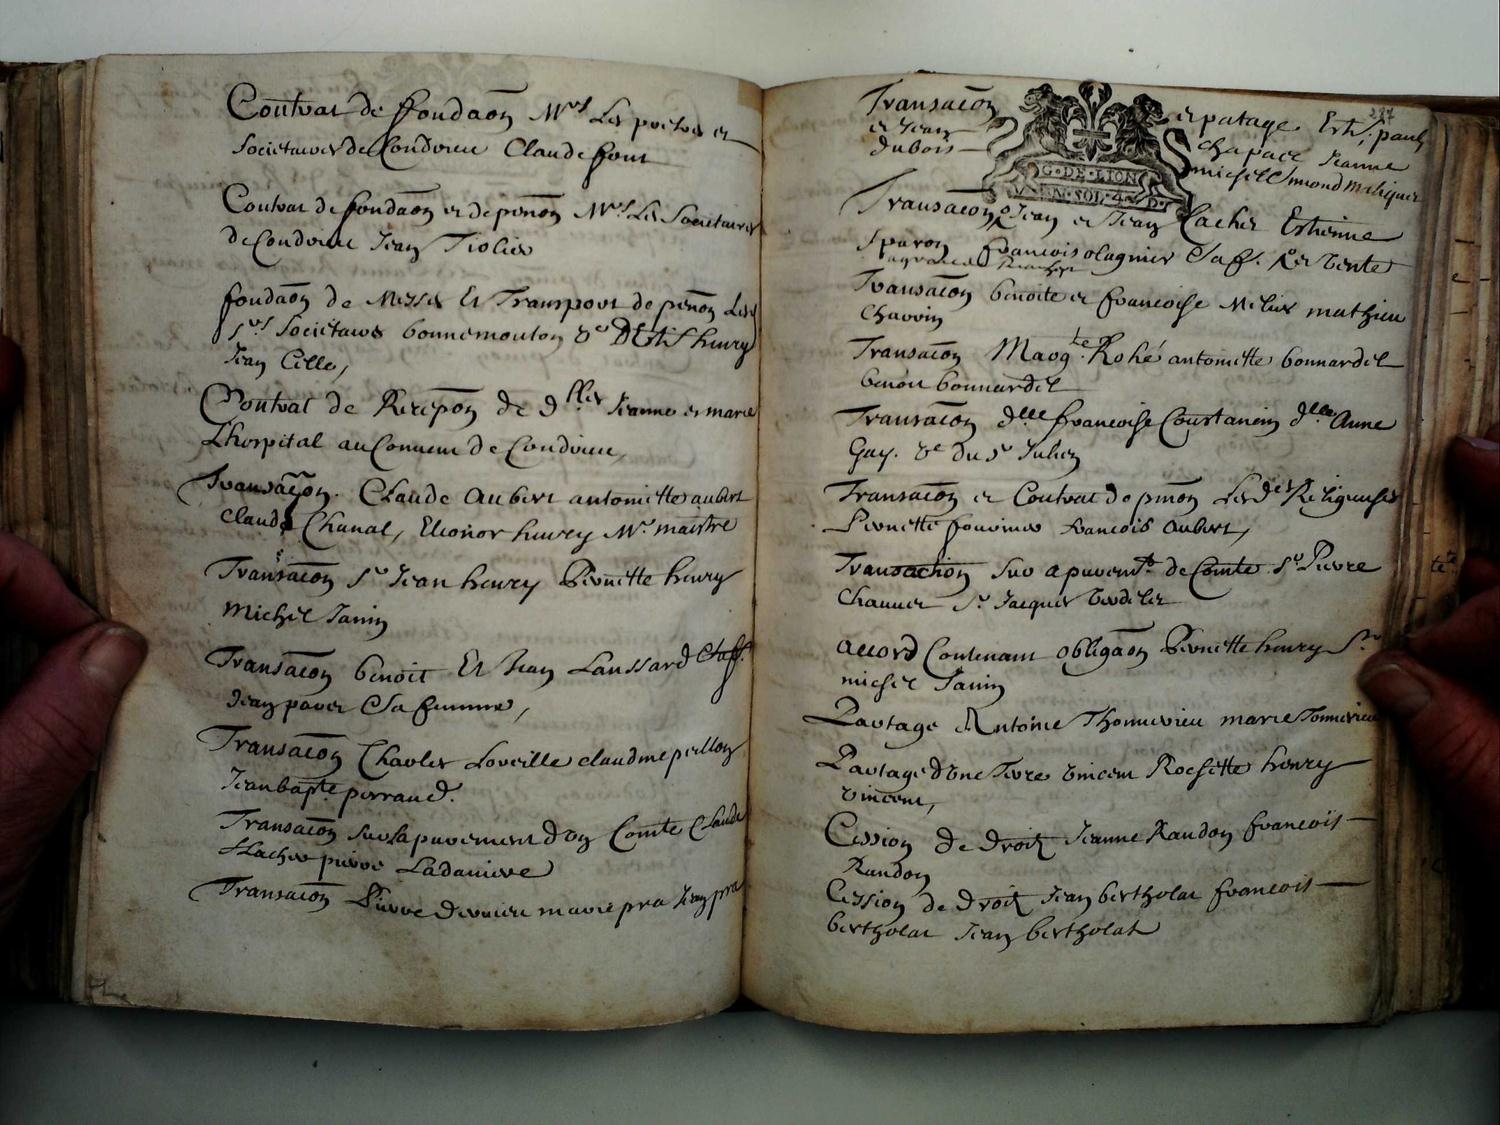 Contrat de fondaõn Mrs Les prebtres et
Societaires de Condrieu Claude font
Contrat de fondaõn et de penõn Mrs Les Societaires
de Condrieu Jean Tiolier
fondaõn de Messes Et Transport de penõn Les
Srs Societaires bonnemouton
Jean Cille,
Contrat de Recepõn de dlles Jeanne et marie
Lhospital au Couvent de Condrieu,
Transacõn. Claude aubert antoinette aubert
Claude Chanal, Eleonor henry Mr. maistre
Transacõn Sr Jean henry Pernette henry
Michel Janin
Transacõn benoit Et Jean Lanssard
Jean paver Sa femme,
Transacõn Charles Loreille claudine peillon
Jean bapte perraud.
Transacõn Sur la parement d'un Comte Claude
flacher pierre Ladaniere
Transacõn Pierre dervieu marie pra Jean pra
Transacõn et partage Est. paul
et Jean chapace Jeanne
dubois michel Simond
G. DE. LION
SOL. 4. D.
Transacõn Jean et Jean Lacher Estienne
Sparon francois olagnier Sa ff. Ret vente
Transacõn benoite et francoise Melier mathieu
Chavin
Transacõn Margte Rohé antoinette bonnardel
benoit bonnardel
Transacõn dlle francoise Courtanein dlle Anne
Gay. ve du Sr Julien
Transacõn et Contrat de pnõn Les des Religieuses
Pernette fourines francois aubert,
Transaction Sur apuremt de Comte Sr Pierre
Chauver Sr Jacques Verdelet
accord Contenant obligaõn Pernette henry Sr
michel Janin
Partage Antoine Thonnerieu marie Tonnerieu
Partage d'une Terre vincent Rochette henry
vincent,
Cession de droit Jeanne Randon francois
Randon
Cession de droit Jean bertholat francois
bertholat Jean bertholat